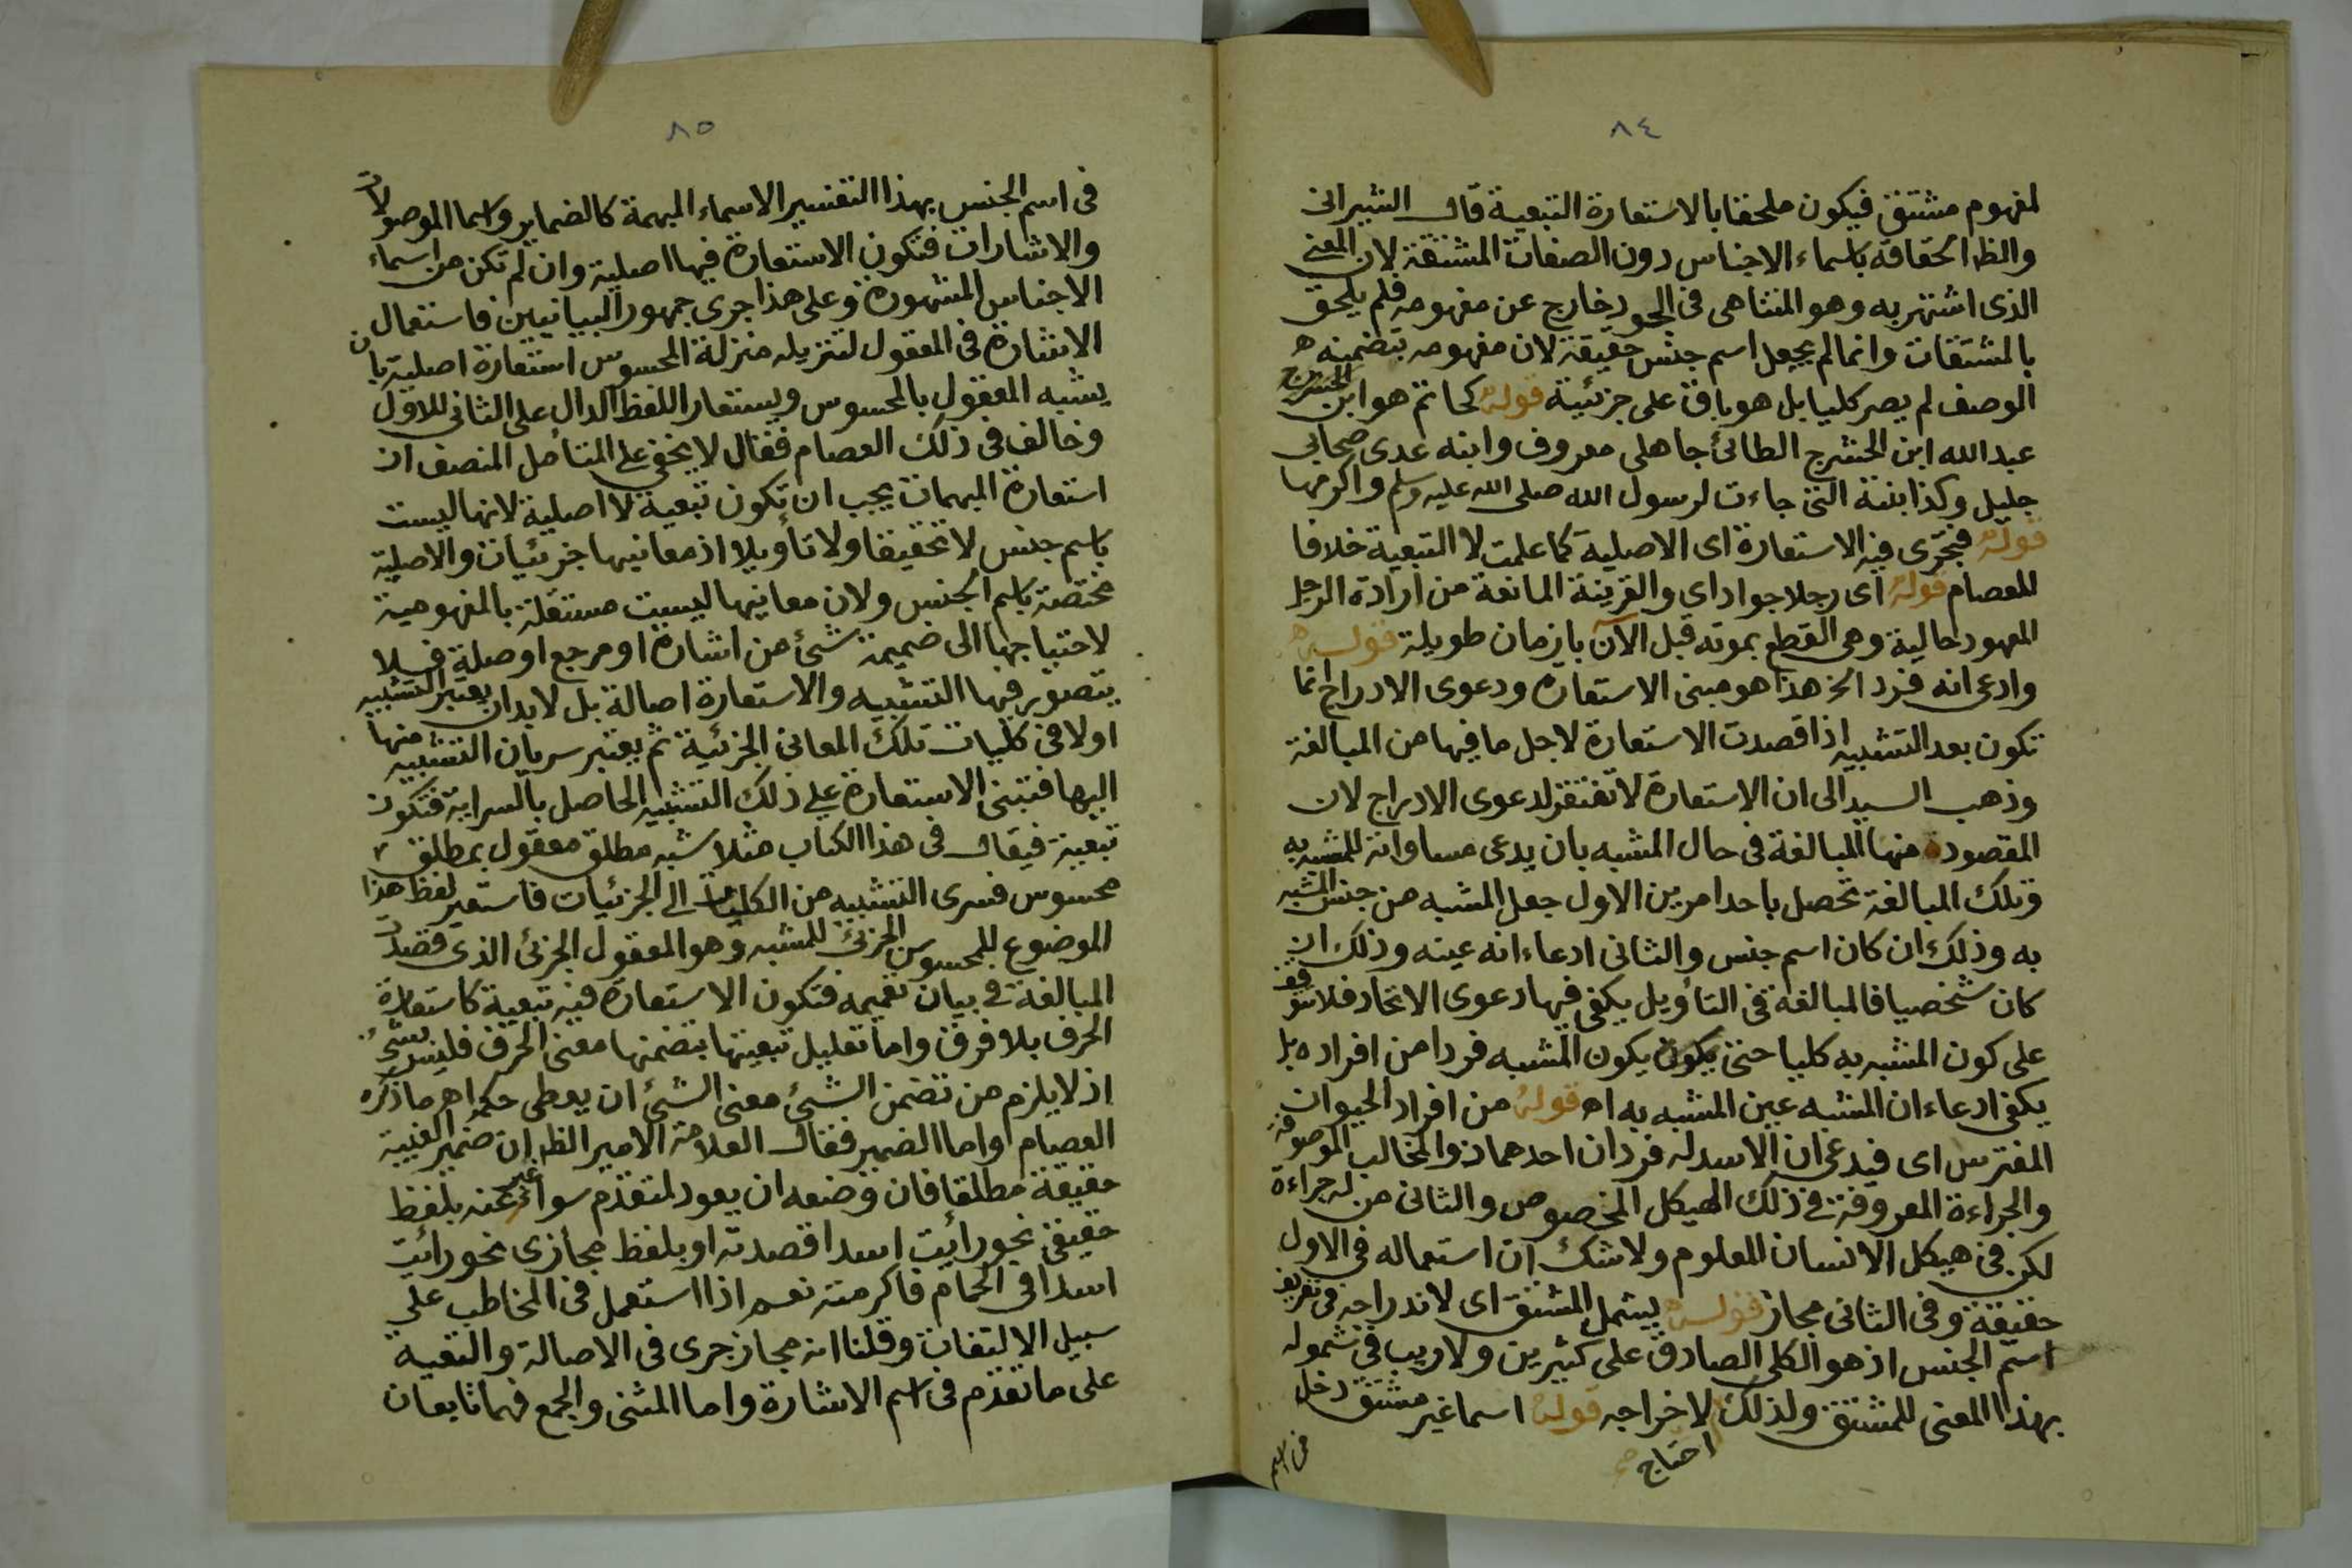 ٨٤
لمفهوم مشتق فيكون ملحقا بالاستعارة التبعية قال الشيرانى
والظ الحقاقه باسماء الاجناس دون الصفات المشتقة لان المعنى
الذى اشتهر به وهو المتناهى فى الجود خارج عن مفهومه فلم يلحق
بالمشتقات وانما لم يجعل اسم جنس حقيقة لان مفهومه بتضمينه
الوصف لم يصر كليا بل هو باق على جزئية قوله كحاتم هو ابن
عبد الله ابن الحشرج الطائى جاهلى معروف وابنه عدى صحابى
جليل وكذا بنته التى جاءت لرسول الله صلى الله عليه وسلم واكرمها
قوله فتجرى فيه الاستعارة اى الاصلية كما علمت لا التبعية خلافا
للعصام قوله اى رجلا جوادا اى والقرينة المانعة من ارادة الرجل
المعهود حالية وهى القطع بموته قبل الآن بازمان طويلة قوله
وادعى انه فرد الخ هذا هو مبنى الاستعارة ودعوى الادراج انما
تكون بعد التشبيه اذا قصدت الاستعارة لاجل ما فيها من المبالغة
وذهب السيد الى ان الاستعارة لا تفتقر لدعوى الادراج لان
المقصودة منها المبالغة فى حال المشبه بان يدعى مساواته للمشبه به
وتلك المبالغة تحصل باحد امرين الاول جعل المشبه من جنس المشبه
به وذلك ان كان اسم جنس والثانى ادعاء انه عينه وذلك ان
كان شخصيا فالمبالغة فى التأويل يكفى فيها دعوى الاتحاد فلا تتوقف
على كون المشبه به كليا حتى يكون يكون المشبه فردا من افراده بل
يكفى ادعاء ان المشبه عين المشبه به اه قوله من افراد الحيوان
المفترس اى فيدعى ان الاسد له فردان احدهما ذو المخالب الموصوفة
والجراءة المعروفة فى ذلك الهيكل المخصوص والثانى من له جراءة
لكن فى هيكل الانسان المعلوم ولا شك ان استعماله فى الاول
حقيقة وفى الثانى مجاز قوله يشمل المشتق اى لاندراجه فى تعريف
اسم الجنس اذ هو الكلى الصادق على كثيرين ولا ريب فى شموله
بهذا المعنى للمشتق ولذلك لاخراجه قوله اسما غير مشتق دخل
احتاج
فى اسم
٨٥
فى اسم الجنس بهذا التفسير الاسماء المبهمة كالضماير واسما الموصولات
والاشارات فتكون الاستعارة فيها اصلية وان لم تكن من اسماء
الاجناس المشهورة وعلى هذا جرى جمهور البيانيين فاستعمال
الاشارة فى المعقول لتنزيله منزلة المحسوس استعارة اصلية بان
يشبه المعقول بالمحسوس ويستعار اللفظ الدال على الثانى للاول
وخالف فى ذلك العصام فقال لا يخفى على المتأمل المنصف ان
استعارة المبهمات يجب ان تكون تبعية لا اصلية لانها ليست
باسم جنس لا تحقيقا ولا تأويلا اذ معانيها جزئيات والاصلية
مختصة باسم الجنس ولان معانيها ليست مستقلة بالمفهومية
لاحتياجها الى ضميمة شئ من اشارة او مرجع او صلة فلا
يتصور فيها التشبيه والاستعارة اصالة بل لابد ان يعتبر التشبيه
اولا فى كليات تلك المعانى الجزئية ثم يعتبر سريان التشبيه منها
اليها فتبتنى الاستعارة على ذلك التشبيه الحاصل بالسراية فتكون
تبعية فيقال فى هذا الكتاب مثلا شبه مطلق معقول بمطلق
محسوس فسرى التشبيه من الكليات الى الجزئيات فاستعير لفظ هذا
الموضوع للمحسوس الجزئ للمشبه وهو المعقول الجزئ الذى قصدت
المبالغة فى بيان تعميمه فتكون الاستعارة فيه تبعية كاستعارة
الحرف بلا فرق واما تعليل تبعيتها بتضمنها معنى الحرف فليس بشئ
اذ لا يلزم من تضمن الشئ معنى الشئ ان يعطى حكمه اه ما ذكره
العصام واما الضمير فقال العلامة الامير الظ ان ضمير الغيبة
حقيقة مطلقا فان وضعه ان يعود لمتقدم سوا عبر عنه بلفظ
حقيقى نحو رأيت اسدا قصدته او بلفظ مجازى نحو رأيت
اسدا فى الحمام فاكرمته نعم اذا استعمل فى المخاطب على
سبيل الالتفات وقلنا انه مجاز جرى فى الاصالة والتعية
على ما تقدم فى اسم الاشارة واما المثنى والجمع فهما تابعان